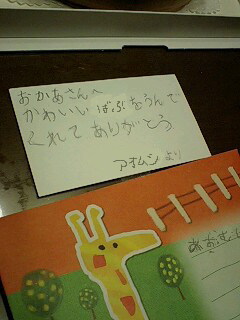 おかあさんへ
かわいい ばぶ をうんで
くれて ありがとう。
アオムシ より